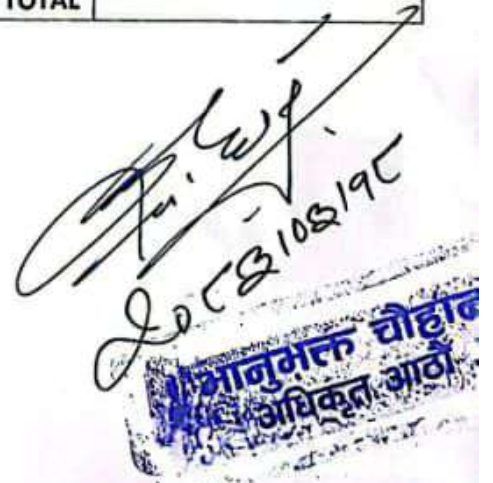 TOTAL
२०८३।०३।१८
भानुभक्त चौहान
अधिकृत आठौं